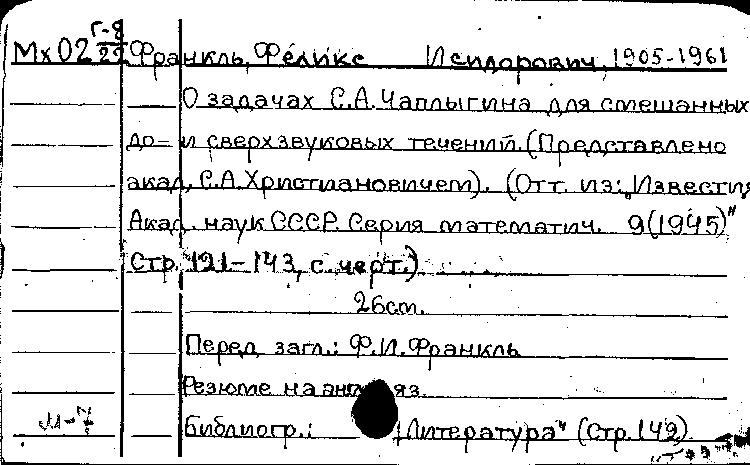 Мх02 Г-8/29 Франкль, Феликс Исидорович, 1905-1961
О задачах С.А.Чаплыгина для смешанных
до- и сверхзвуковых течений. (Представлено
акад. С.А.Христиановичем). (Отт. из: „Известия
Акад. наук СССР. Серия математич. 9(1945)"
Стр. 121-143, с черт.)
26 cm.
Перед загл.: Ф.И.Франкль
Резюме на англ. яз.
Библиогр.: „Литература" (Стр. 142)